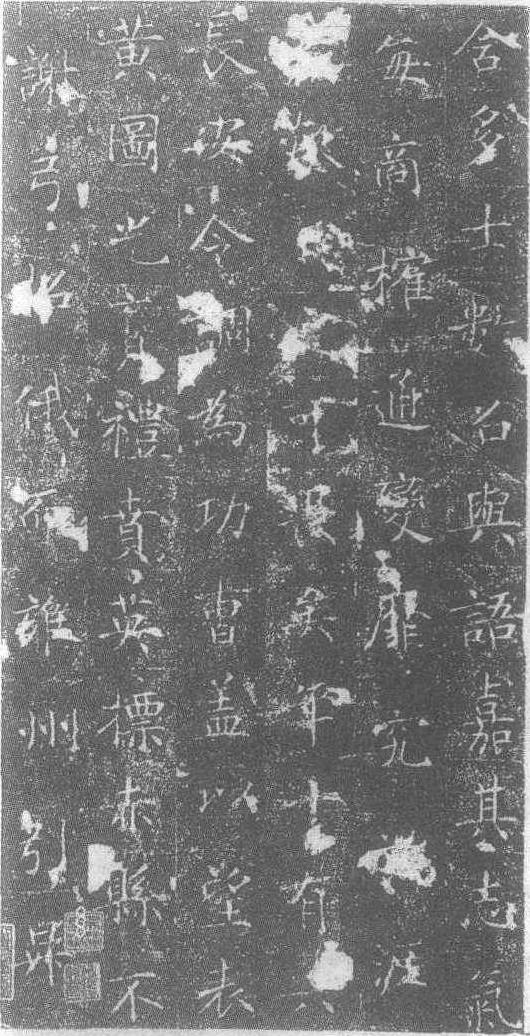 舍多士數召與語嘉其志氣
每商攉通變靡究涯
歎矣年十有六
長安令調為功曹蓋以望表
黃圖光禮賁英摽赤縣不
謝弓招俄而雍州引昇